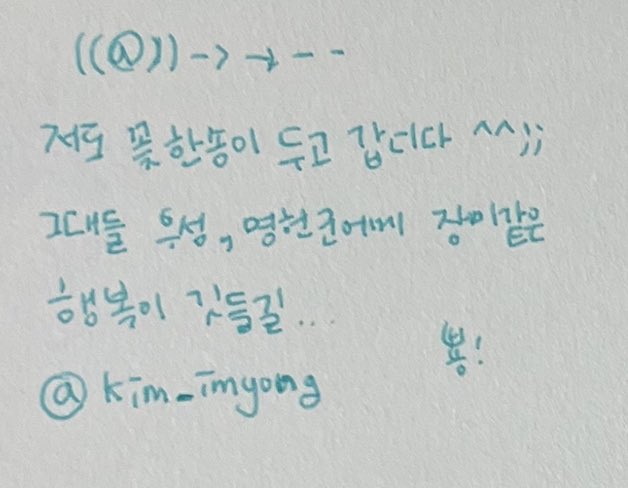 ((@))->→--
저도 꽃 한송이 두고 갑니다 ^^;;
그대들 우성, 명헌군에게 장미같은
행복이 깃들길...
뿅!
@kim_imyong